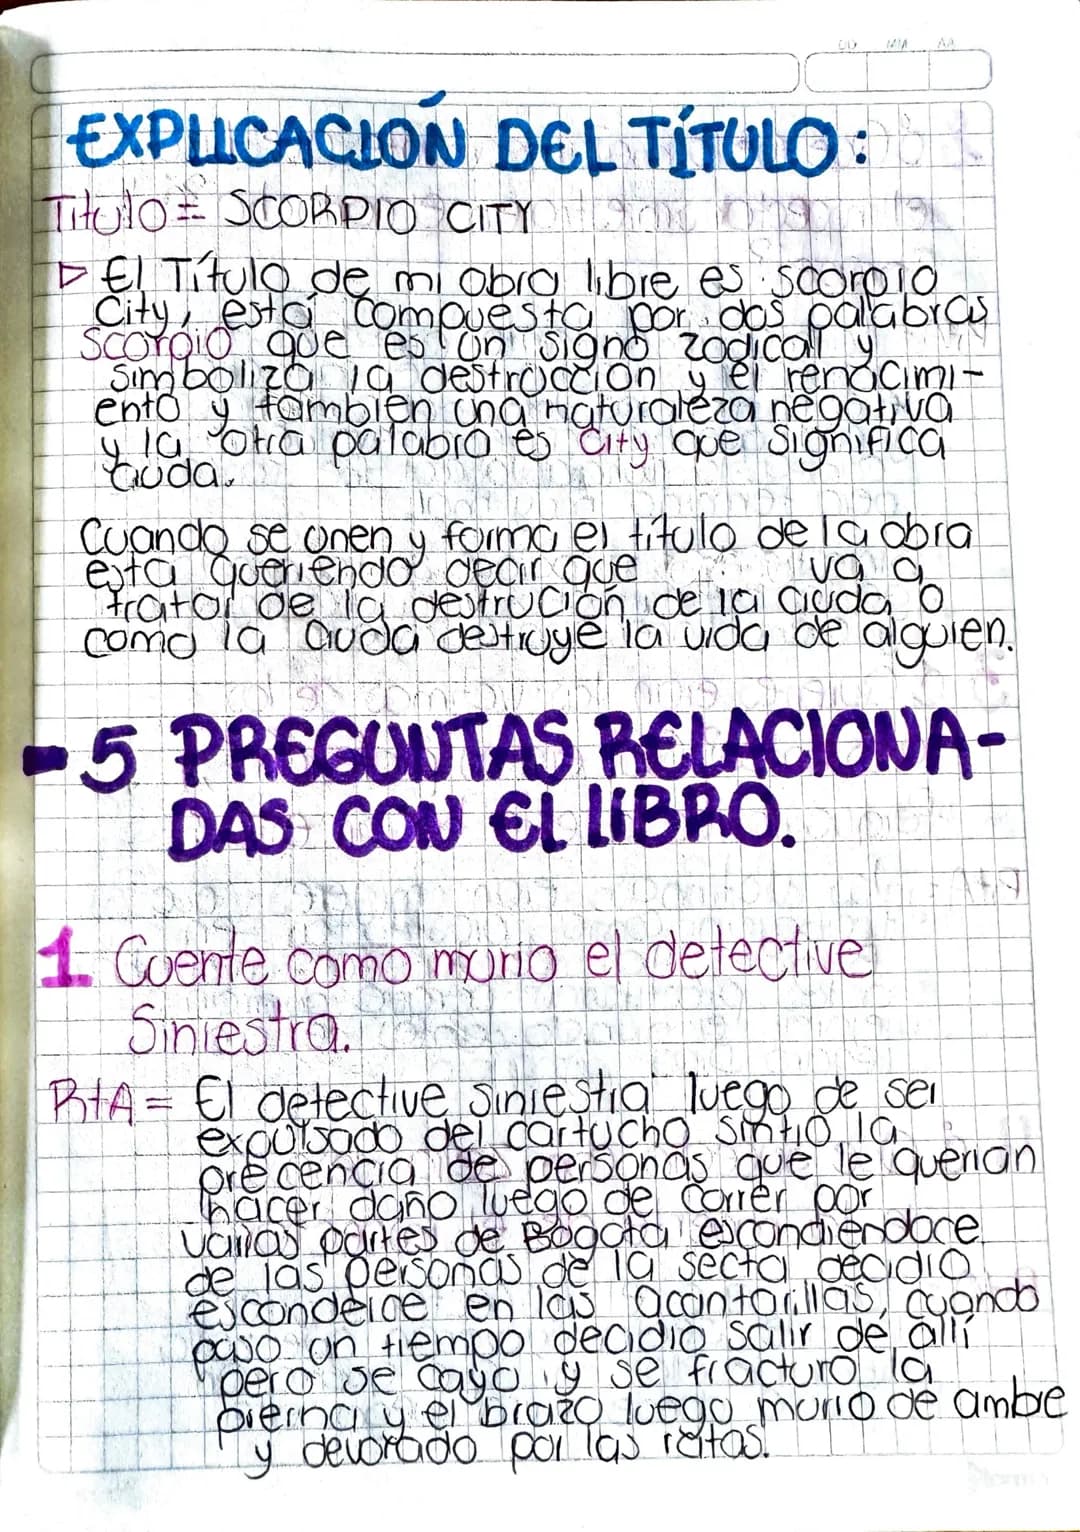 DD MM AA
EXPLICACIÓN DEL TÍTULO:
Titulo = SCORPIO CITY
▷ El Título de mi obra libre es scorpio
City, está compuesta por dos palabras
Scorpio que es un signo zodical y
simboliza la destrucción y el renacimi-
ento y tambien una naturaleza negativa
y la otra palabra es City que significa
ciuda.
Cuando se unen y forma el título de la obra
esta queriendo decir que va a
tratar de la destrución de la ciuda o
como la ciuda destruye la vida de alguien.
-5 PREGUNTAS RELACIONA-
DAS CON EL LIBRO.
1 Cuente como murio el detective
Siniestra.
RtA = El detective siniestra luego de ser
expulsado del cartucho sintio la
precencia de personas que le querian
hacer daño luego de correr por
varias partes de Bogota escondiendoce
de las personas de la secta decidio
esconderce en las acantarillas, cuando
paso un tiempo decidio salir de allí
pero se cayo y se fracturo la
pierna y el brazo luego murio de ambre
y devorado por las ratas.